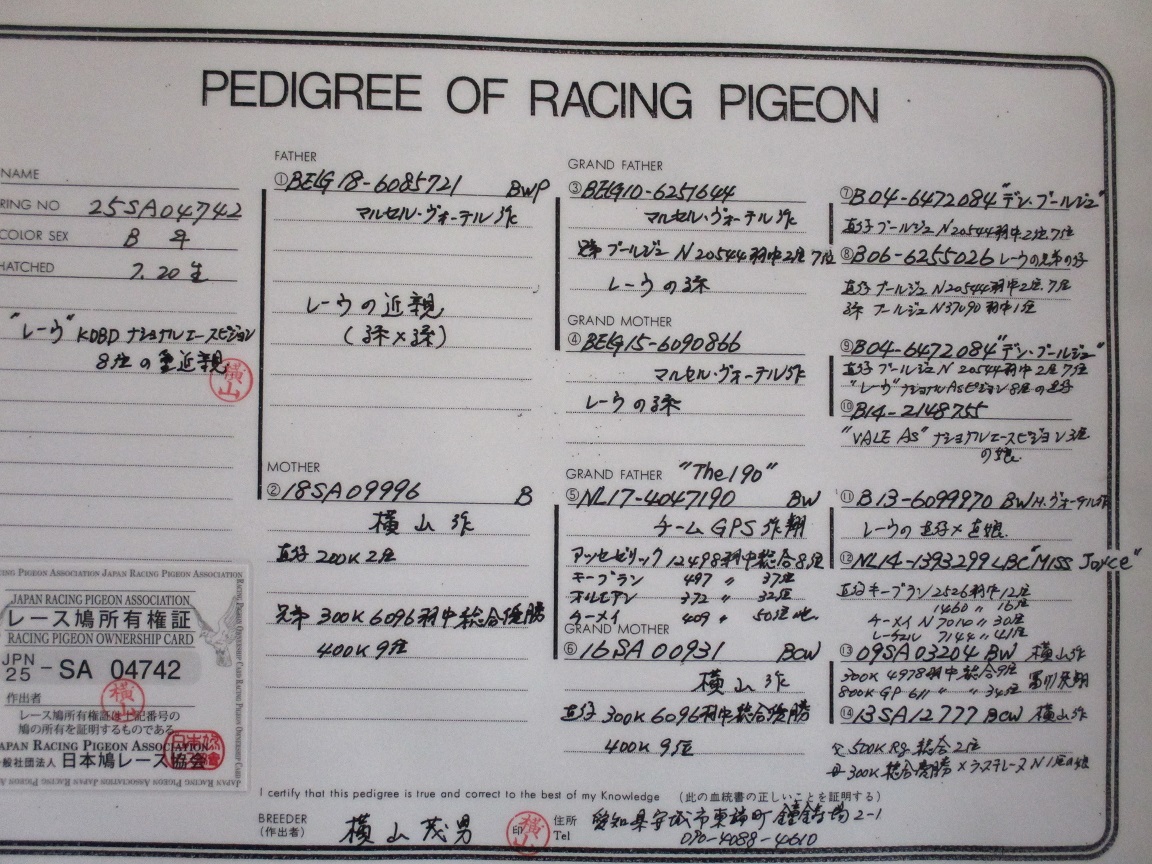 PEDIGREE OF RACING PIGEON
NAME
RING NO 25SA04742
COLOR SEX B ♀
HATCHED 7.20生
"レーヴ" KDBD ナショナルエースピジョン
8位の重近親
横山
FATHER
①BELG18-6085721 BWP
マルセル・ヴォーテル作
レーヴの近親
(孫×孫)
MOTHER
②18SA09996 B
横山作
直仔 200K 2位
兄弟 300K 6096羽中総合優勝
400K 9位
GRAND FATHER
③BELG10-6251644
マルセル・ヴォーテル作
兄弟 ブールジュ N 20544羽中2位7位
レーヴの孫
GRAND MOTHER
④BELG15-6090866
マルセル・ヴォーテル作
レーヴの孫
GRAND FATHER "The190"
⑤NL17-4047190 BW
チームGPS作翔
アッセゼリック 12498羽中総合8位
キーブラン 497 〃 37位
オルモアン 372 〃 32位
ターメイ 409 〃 50位他
GRAND MOTHER
⑥16SA00931 BCW
横山作
直仔 300K 6096羽中総合優勝
400K 9位
⑦B04-6472084 "デン・ブールジュ"
直仔 ブールジュ N 20544羽中2位7位
⑧B06-6255026 レーヴの兄弟の仔
直仔 ブールジュ N 20544羽中2位.7位
孫 ブールジュ N37090羽中1位
⑨B04-6472084 "デン・ブールジュ"
直仔 ブールジュN 20544羽中2位7位
"レーヴ" ナショナルAsピジョン8位の直仔
⑩B14-2148755
"VALE As" ナショナルエースピジョン3位
の娘
⑪B13-6099970 BW H.ヴォーテル作
レーヴの直仔×直娘
⑫NL14-1393299 LBC "Miss Joyce"
直仔 キーブラン 2526羽中12位
1460 〃 16位
ターメイ N 7010 〃 30位
レーケル 7144 〃 41位
⑬09SA03204 BW 横山作
300K 4978羽中総合9位
800K GP 611 〃 〃 34位
⑭13SA12777 BCW 横山作
父 500K Rg 総合2位
母 300K 総合優勝×
JAPAN RACING PIGEON ASSOCIATION
レース鳩所有権証
RACING PIGEON OWNERSHIP CARD
JPN
25 - SA 04742
作出者
横山
レース鳩所有権証は上記番号の
鳩の所有を証明するものである
JAPAN RACING PIGEON ASSOCIATION
一般社団法人 日本鳩レース協会
I certify that this pedigree is true and correct to the best of my Knowledge (此の血統書の正しいことを証明する)
BREEDER
(作出者) 横山茂男 印 横山
住所 愛知県安城市東端町鐘鋳場2-1
Tel 090-4088-4610